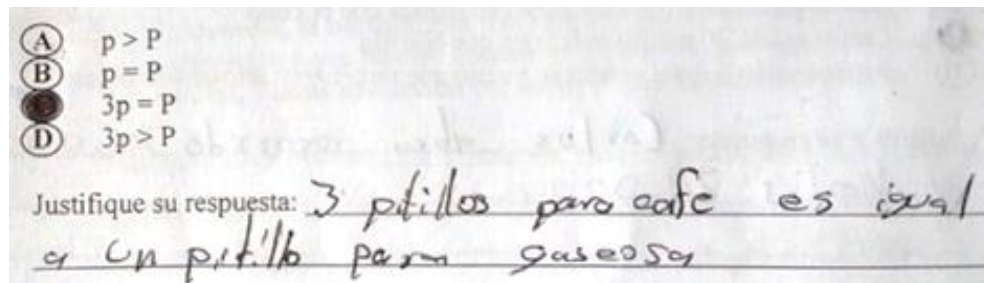 A p > P
B p = P
3p = P
D 3p > P
Justifique su respuesta: 3 pitillos para cafe es igual
a un pitillo para gaseosa